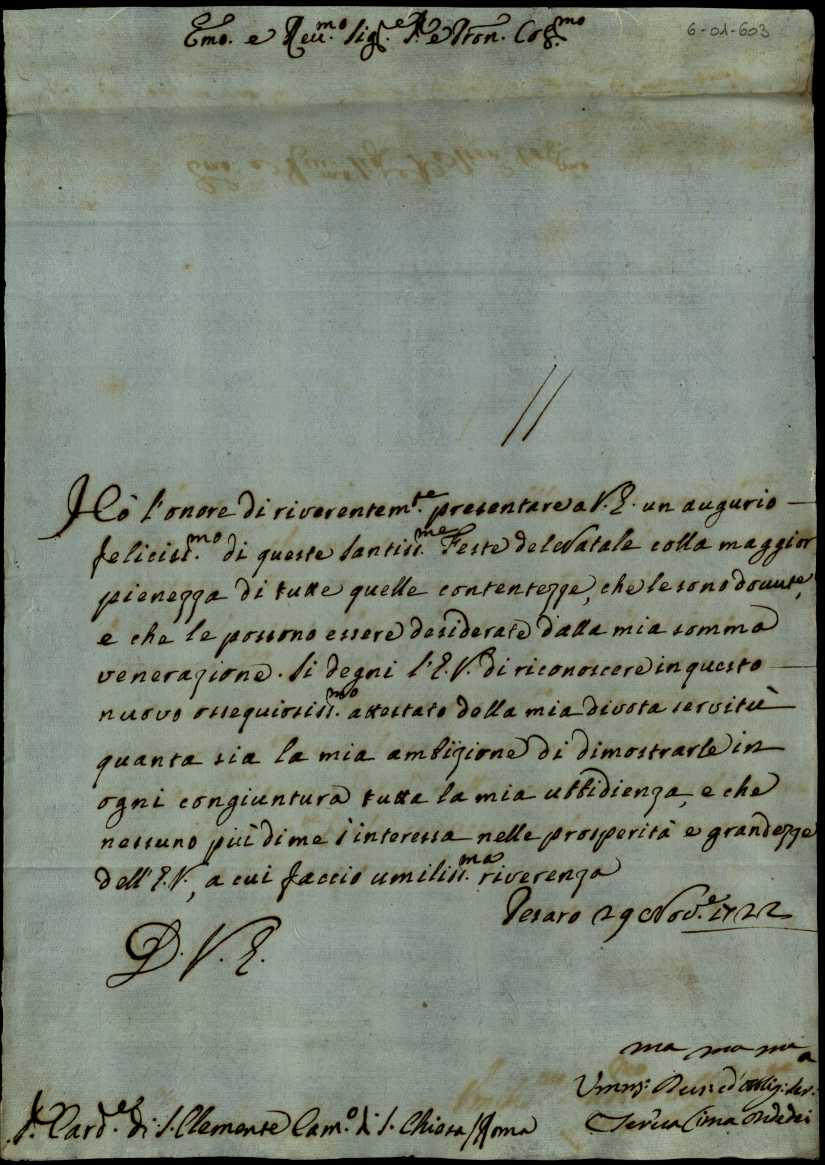 Emo. e Reu.mo Sig.re P.e e Pron. Col.mo
6-01-603
Hò l'onore di riverentem.te presentare a V.E. un augurio
feliciss.mo di queste Santiss.me Feste del Natale colla maggior
pienezza di tutte quelle contentezze, che le sono dovute,
e che le possono essere desiderate dalla mia somma
venerazione. Si degni l'E.V. di riconoscere in questo
nuovo ossequiosiss.mo attestato della mia divota servitù
quanta sia la mia ambizione di dimostrarle in
ogni congiuntura tutta la mia ubbidienza, e che
nessuno più di me s'interessa nelle prosperità e grandezze
dell'E.V., a cui faccio umiliss.ma riverenza
Pesaro 29 Nov.e 1722
D.V.E.
S.r Card.le di S. Clemente Cam.o di S. Chiesa / Roma